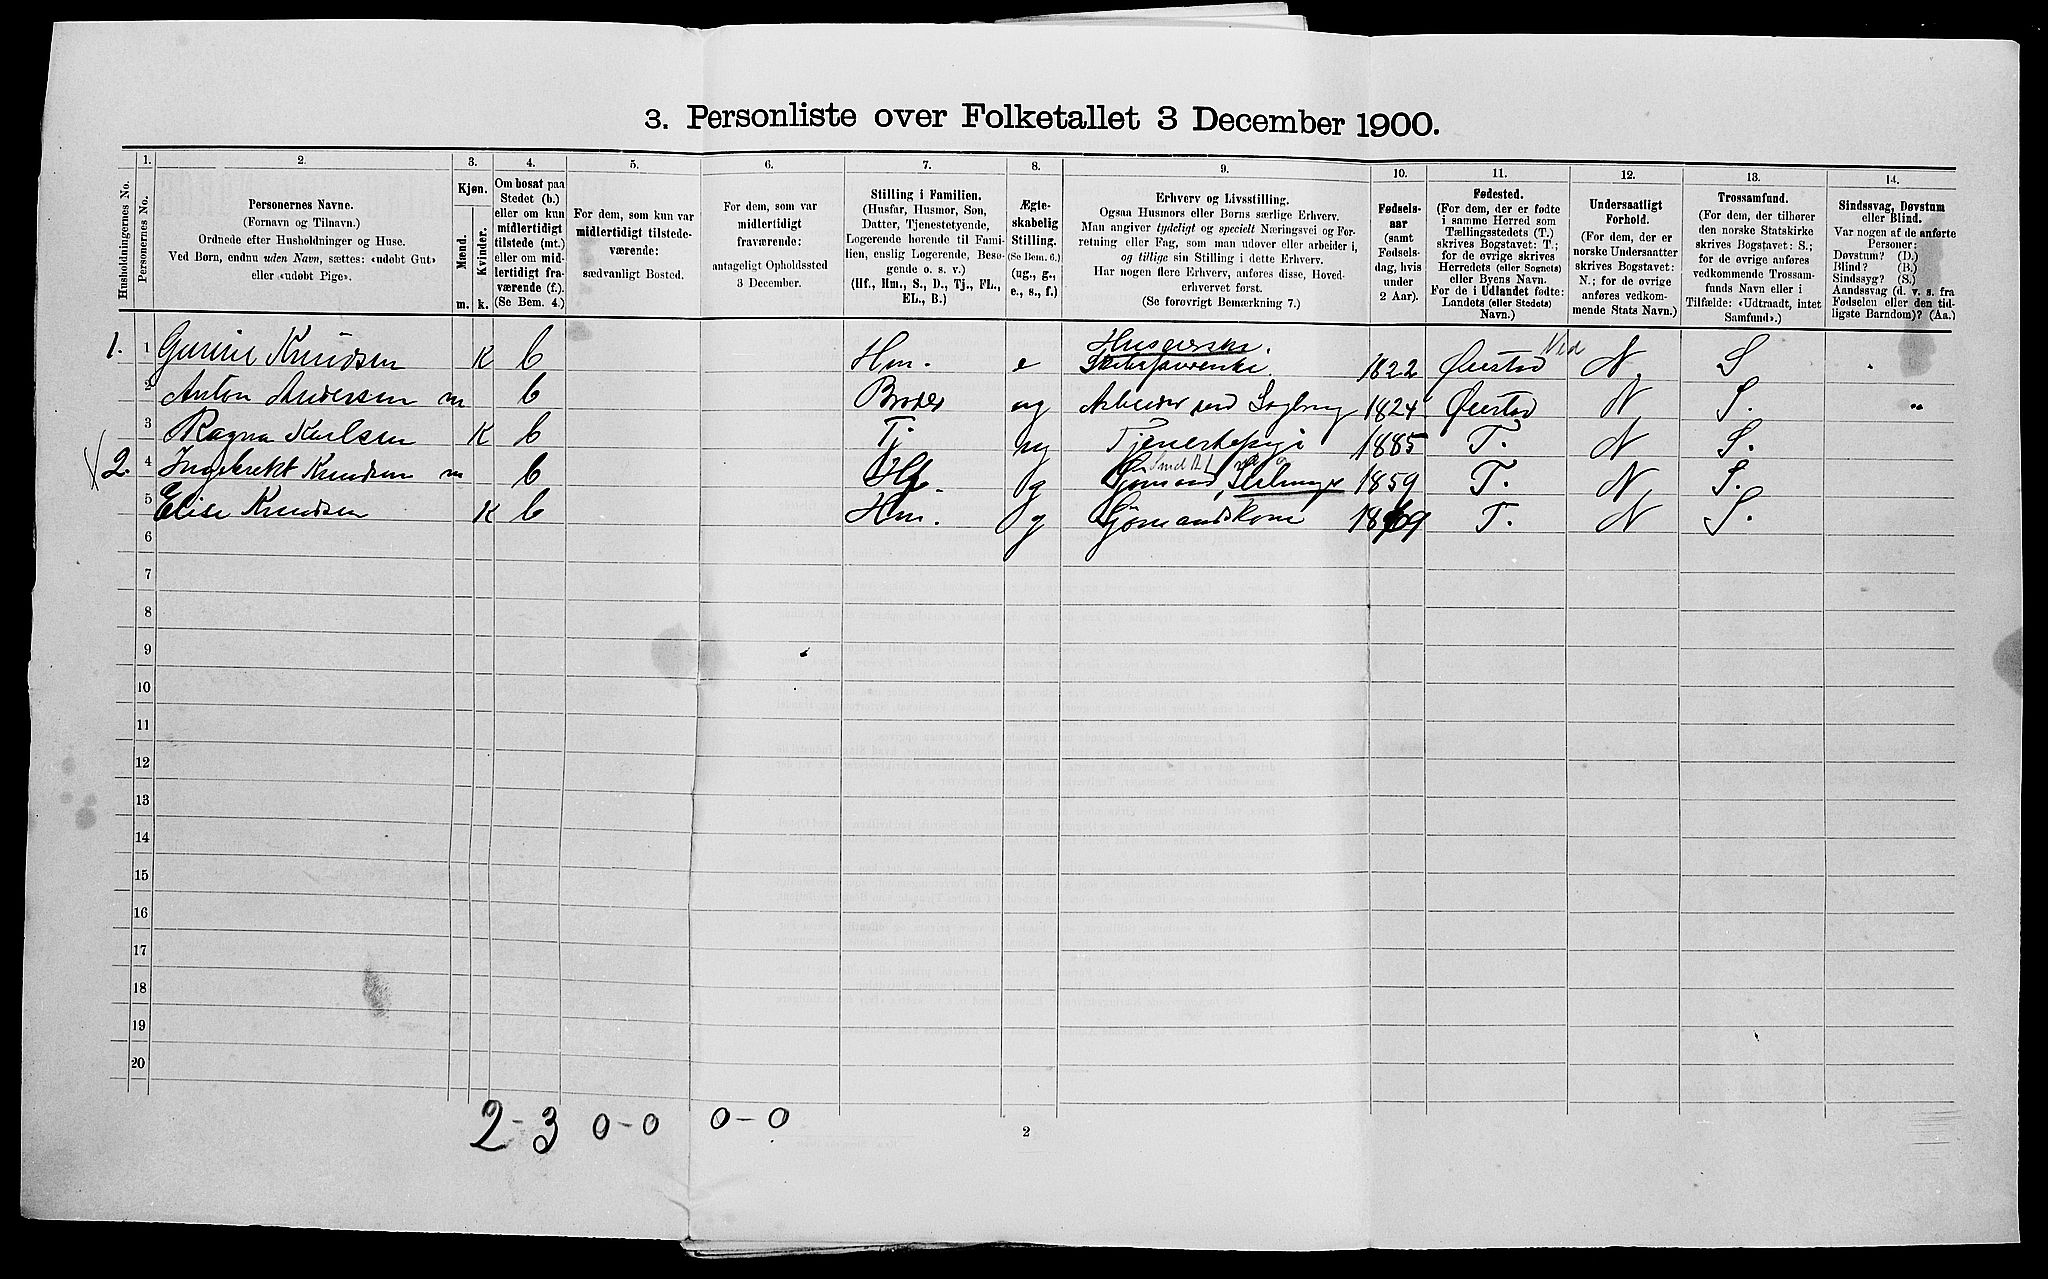 3. Personliste over Folketallet 3 December 1900.
Husholdningernes No.
1. Personernes No.
2. Personernes Navne.
(Fornavn og Tilnavn.)
Ordnede efter Husholdninger og Huse.
Ved Børn, endnu uden Navn, sættes: «udøbt Gut»
eller «udøbt Pige».
3. Kjøn.
Mænd.
Kvinder.
m. k.
4. Om bosat paa
Stedet (b.)
eller om kun
midlertidigt
tilstede (mt.)
eller om mid-
lertidigt fra-
værende (f.).
(Se Bem. 4.)
5. For dem, som kun var
midlertidigt tilstede-
værende:
sædvanligt Bosted.
6. For dem, som var
midlertidigt
fraværende:
antageligt Opholdssted
3 December.
7. Stilling i Familien.
(Husfar, Husmor, Søn,
Datter, Tjenestetyende,
Logerende hørende til Fami-
lien, enslig Logerende, Besø-
gende o. s. v.)
(Hf., Hm., S., D., Tj., FL.,
EL., B.)
8. Ægte-
skabelig
Stilling.
(Se Bem. 6.)
(ug., g.,
e., s., f.)
9. Erhverv og Livsstilling.
Ogsaa Husmors eller Børns særlige Erhverv.
Man angiver tydeligt og specielt Næringsvei og For-
retning eller Fag, som man udøver eller arbeider i,
og tillige sin Stilling i dette Erhverv.
Har nogen flere Erhverv, anføres disse, Hoved-
erhvervet først.
(Se forøvrigt Bemærkning 7.)
10. Fødsels-
aar
(samt
Fødsels-
dag, hvis
under
2 Aar).
11. Fødested.
(For dem, der er fødte
i samme Herred som
Tællingsstedets (T.)
skrives Bogstavet: T.;
for de øvrige skrives
Herredets (eller Sognets)
eller Byens Navn.
For de i Udlandet fødte:
Landets (eller Stedets)
Navn.)
12. Undersaatligt
Forhold.
(For dem, der er
norske Undersaatter
skrives Bogstavet:
N.; for de øvrige
anføres vedkom-
mende Stats Navn.)
13. Trossamfund.
(For dem, der tilhører
den norske Statskirke
skrives Bogstavet: S.;
for de øvrige anføres
vedkommende Trossam-
funds Navn eller i
Tilfælde: «Udtraadt, intet
Samfund».)
14. Sindssvag, Døvstum
eller Blind.
Var nogen af de anførte
Personer:
Døvstum? (D.)
Blind? (B.)
Sindssyg? (S.)
Aandssvag (d. v. s. fra
Fødselen eller den tid-
ligste Barndom)? (Aa.)
1. 1 Gurine Knudsen K b Hm. e 1822 Øiestad N. S.
2 Anton Andersen m b Broder ug Arbeider ved Sagbrug 1824 Øiestad N. S.
3 Ragna Karlsen K b Tj ug Tjenestepige 1885 T. N S.
2. 4 Ingebrekt Knudsen m b Hf. g 1859 T. N. S.
5 Elise Knudsen K b Hm. g Sjømandskone 1869 T. N S.
6
7
8
9
10
11
12
13
14
15
16
17
18
19
20
2-3 0-0 0-0
2